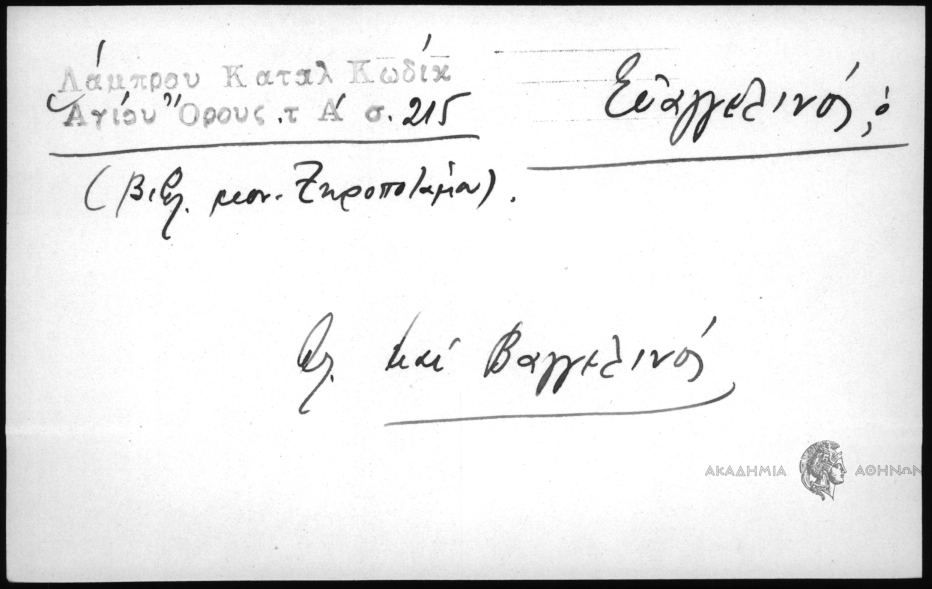 Λάμπρου Καταλ Κωδίκ
Ἁγίου Ὄρους τ. Α΄ σ. 215
Εὐαγγελινός, ὁ
(Βιβλ. μον. Ξηροποτάμου).
Βλ. καί Βαγγελινός
ΑΚΑΔΗΜΙΑ ΑΘΗΝΩΝ